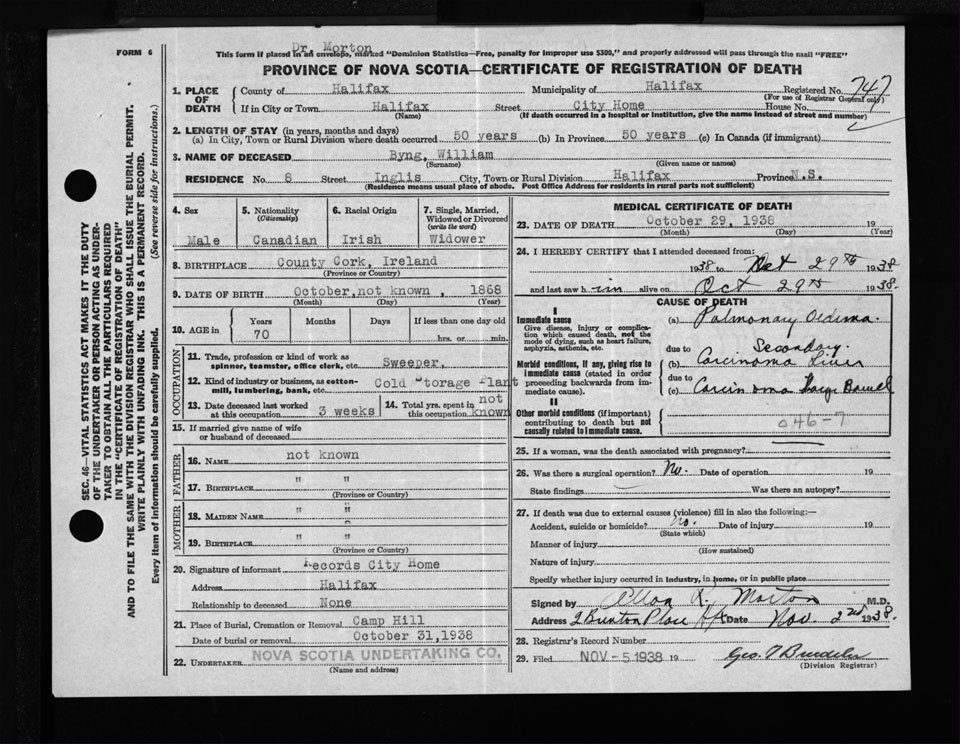 FORM 6
Dr. Morton
This form if placed in an envelope, marked "Dominion Statistics—Free, penalty for improper use $300," and properly addressed will pass through the mail "FREE"
PROVINCE OF NOVA SCOTIA—CERTIFICATE OF REGISTRATION OF DEATH
1. PLACE OF DEATH
County of Halifax Municipality of Halifax Registered No. 747
(For use of Registrar General only)
If in City or Town Halifax Street City Home House No.
(Name) (If death occurred in a hospital or institution, give the name instead of street and number)
2. LENGTH OF STAY (in years, months and days)
(a) In City, Town or Rural Division where death occurred 50 years (b) In Province 50 years (c) In Canada (if immigrant)
3. NAME OF DECEASED Byng, William
(Surname) (Given name or names)
RESIDENCE No. 8 Street Inglis City, Town or Rural Division Halifax Province N.S.
(Residence means usual place of abode. Post Office Address for residents in rural parts not sufficient)
4. Sex
Male
5. Nationality
(Citizenship)
Canadian
6. Racial Origin
Irish
7. Single, Married, Widowed or Divorced
(write the word)
Widower
8. BIRTHPLACE County Cork, Ireland
(Province or Country)
9. DATE OF BIRTH October, not known, 1868
(Month) (Day) (Year)
10. AGE in
Years Months Days If less than one day old
70 hrs. or min.
OCCUPATION
11. Trade, profession or kind of work as spinner, teamster, office clerk, etc. Sweeper,
12. Kind of industry or business, as cotton-mill, lumbering, bank, etc. Cold Storage Plant
13. Date deceased last worked at this occupation 3 weeks
14. Total yrs. spent in this occupation not known
15. If married give name of wife or husband of deceased
FATHER
16. NAME not known
17. BIRTHPLACE " "
(Province or Country)
MOTHER
18. MAIDEN NAME " "
19. BIRTHPLACE " "
(Province or Country)
20. Signature of informant Records City Home
Address Halifax
Relationship to deceased None
21. Place of Burial, Cremation or Removal Camp Hill
Date of burial or removal October 31, 1938
22. UNDERTAKER NOVA SCOTIA UNDERTAKING CO.
(Name and address)
MEDICAL CERTIFICATE OF DEATH
23. DATE OF DEATH October 29, 1938 19
(Month) (Day) (Year)
24. I HEREBY CERTIFY that I attended deceased from:
1938 to Oct 29th 1938
and last saw h im alive on Oct 29th 1938.
CAUSE OF DEATH
I
Immediate cause
Give disease, injury or complication which caused death, not the mode of dying, such as heart failure, asphyxia, asthenia, etc.
(a) Pulmonary Oedema.
due to Secondary
Morbid conditions, if any, giving rise to immediate cause (stated in order proceeding backwards from immediate cause).
(b) Carcinoma Liver
due to
(c) Carcinoma Large Bowel
II
Other morbid conditions (if important) contributing to death but not causally related to immediate cause.
046-7
25. If a woman, was the death associated with pregnancy?
26. Was there a surgical operation? No. Date of operation 19
State findings Was there an autopsy?
27. If death was due to external causes (violence) fill in also the following:—
Accident, suicide or homicide? No. Date of injury 19
(State which)
Manner of injury
(How sustained)
Nature of injury
Specify whether injury occurred in industry, in home, or in public place
Signed by L. Morton M.D.
Address Place Hfx Date Nov. 2nd 1938.
28. Registrar's Record Number
29. Filed NOV - 5 1938 19 Geo.
(Division Registrar)
SEC. 46—VITAL STATISTICS ACT MAKES IT THE DUTY
OF THE UNDERTAKER OR PERSON ACTING AS UNDER-
TAKER TO OBTAIN ALL THE PARTICULARS REQUIRED
IN THE "CERTIFICATE OF REGISTRATION OF DEATH"
AND TO FILE THE SAME WITH THE DIVISION REGISTRAR WHO SHALL ISSUE THE BURIAL PERMIT.
WRITE PLAINLY WITH UNFADING INK. THIS IS A PERMANENT RECORD.
Every item of information should be carefully supplied. (See reverse side for instructions.)